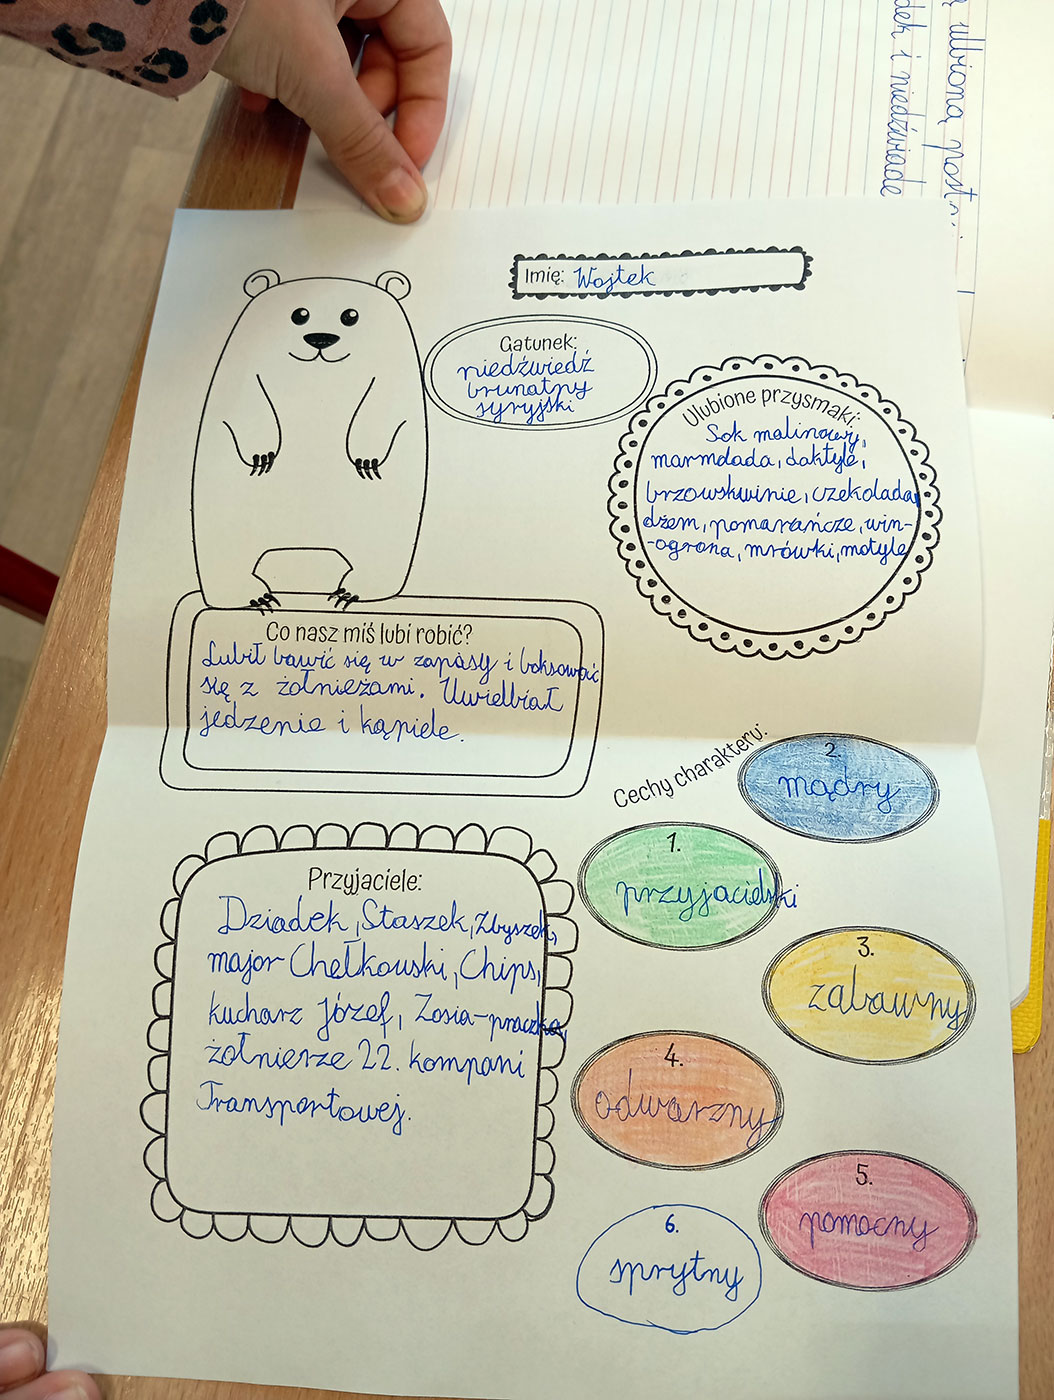 ulubioną post
dek i niedźwiade
Imię: Wojtek
Gatunek:
niedźwiedź
brunatny
syryjski
Ulubione przysmaki:
Sok malinowy,
marmdada, daktyle,
brzowskwinie, czekolada,
dżem, pomarańcze, win-
-ogrona, mrówki, motyle
Co nasz miś lubi robić?
Lubił bawić się w zapasy i boksować
się z żołnieżami. Uwielbiał
jedzenie i kąpiele.
Cechy charakteru:
1.
przyjacielski
2.
mądry
3.
zabawny
4.
odważny
5.
pomocny
6.
sprytny
Przyjaciele:
Dziadek, Staszek, Zbyszek,
major Chełkowski, Chips,
kucharz Józef, Zosia-praczka,
żołnierze 22. kompani
Transportowej.